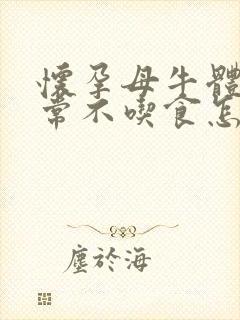 懷孕母牛體
常不喫食怎
塵於海